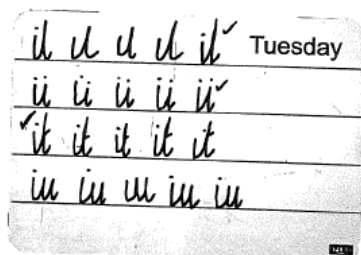 il il il il il ✓ Tuesday
ii ii ii ii ii ✓
✓ it it it it it
iu iu iu iu iu